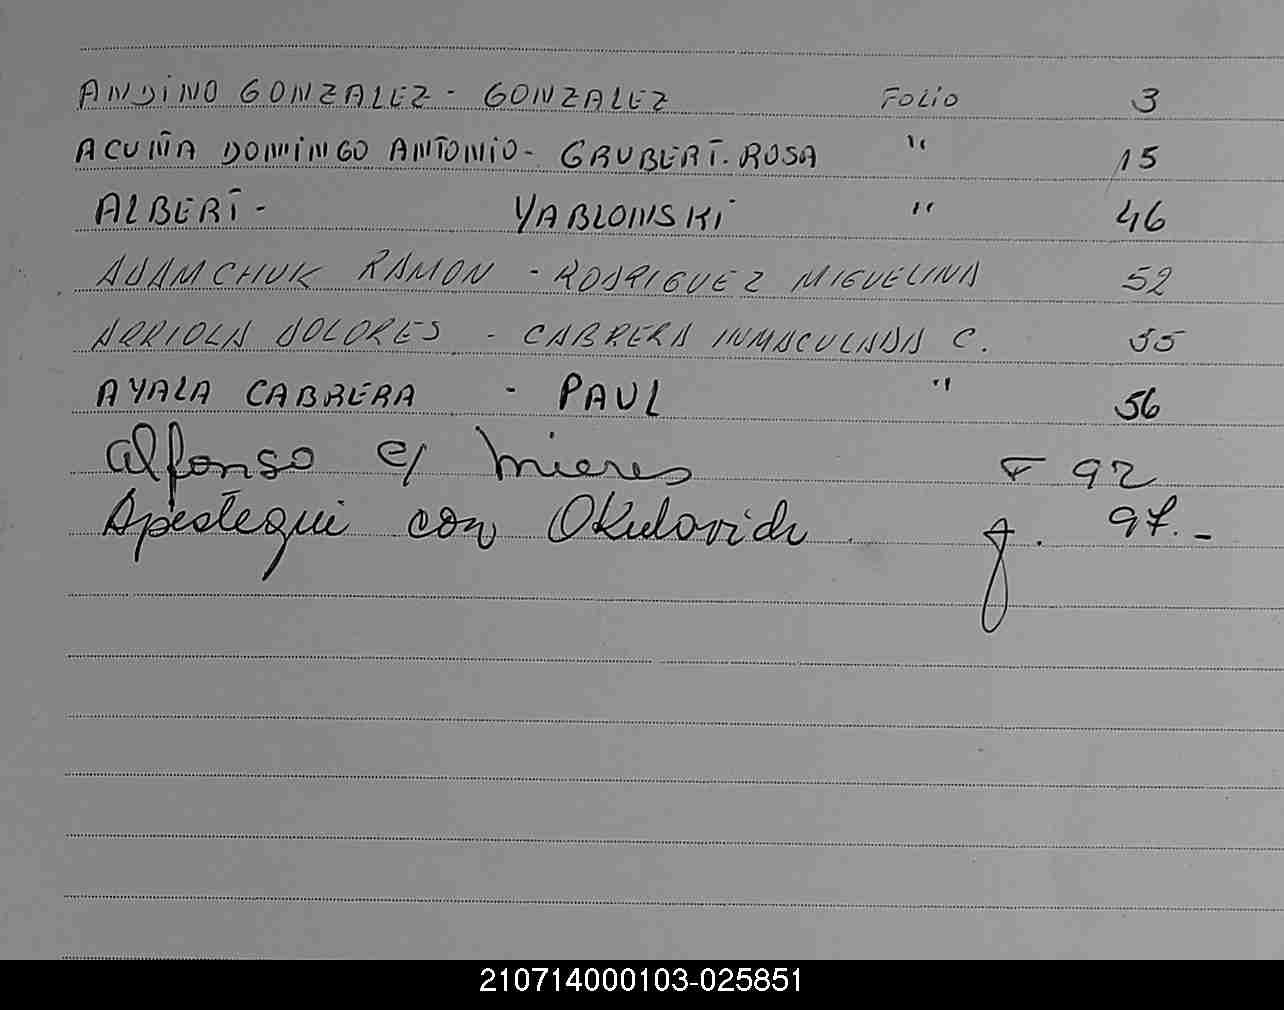 ANDINO GONZALEZ - GONZALEZ FOLIO 3
ACUÑA DOMINGO ANTONIO - GRUBERT. ROSA " 15
ALBERT - YABLONSKI " 46
ADAMCHUK RAMON - RODRIGUEZ MIGUELINA 52
ARRIOLA DOLORES - CABRERA INMACULADA C. 55
AYALA CABRERA - PAUL " 56
Alfonso c/ Mieres F 92
Apestegui con Okulovich f. 97.-
210714000103-025851